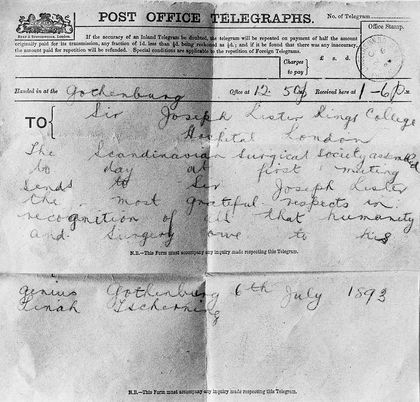 POST OFFICE TELEGRAPHS.
No. of Telegram
If the accuracy of an Inland Telegram be doubted, the telegram will be repeated on payment of half the amount
originally paid for its transmission, any fraction of 1d. less than ½d. being reckoned as ½d.; and if it be found that there was any inaccuracy,
the amount paid for repetition will be refunded. Special conditions are applicable to the repetition of Foreign Telegrams.
Office Stamp.
Charges
to pay
£ s. d.
Handed in at the Gothenburg Office at 12.50 Received here at 1-6 P.m
TO Sir Joseph Lister Kings College
Hospital London
The Scandinavian Surgical Society assembled
to day at first meeting
sends to Sir Joseph Lister
the most grateful respects in
recognition of all that humanity
and Surgery owe to his
N.B.—This Form must accompany any inquiry made respecting this Telegram.
genius Gothenburg 6th July 1893
Tscherning
N.B.—This Form must accompany any inquiry made respecting this Telegram.